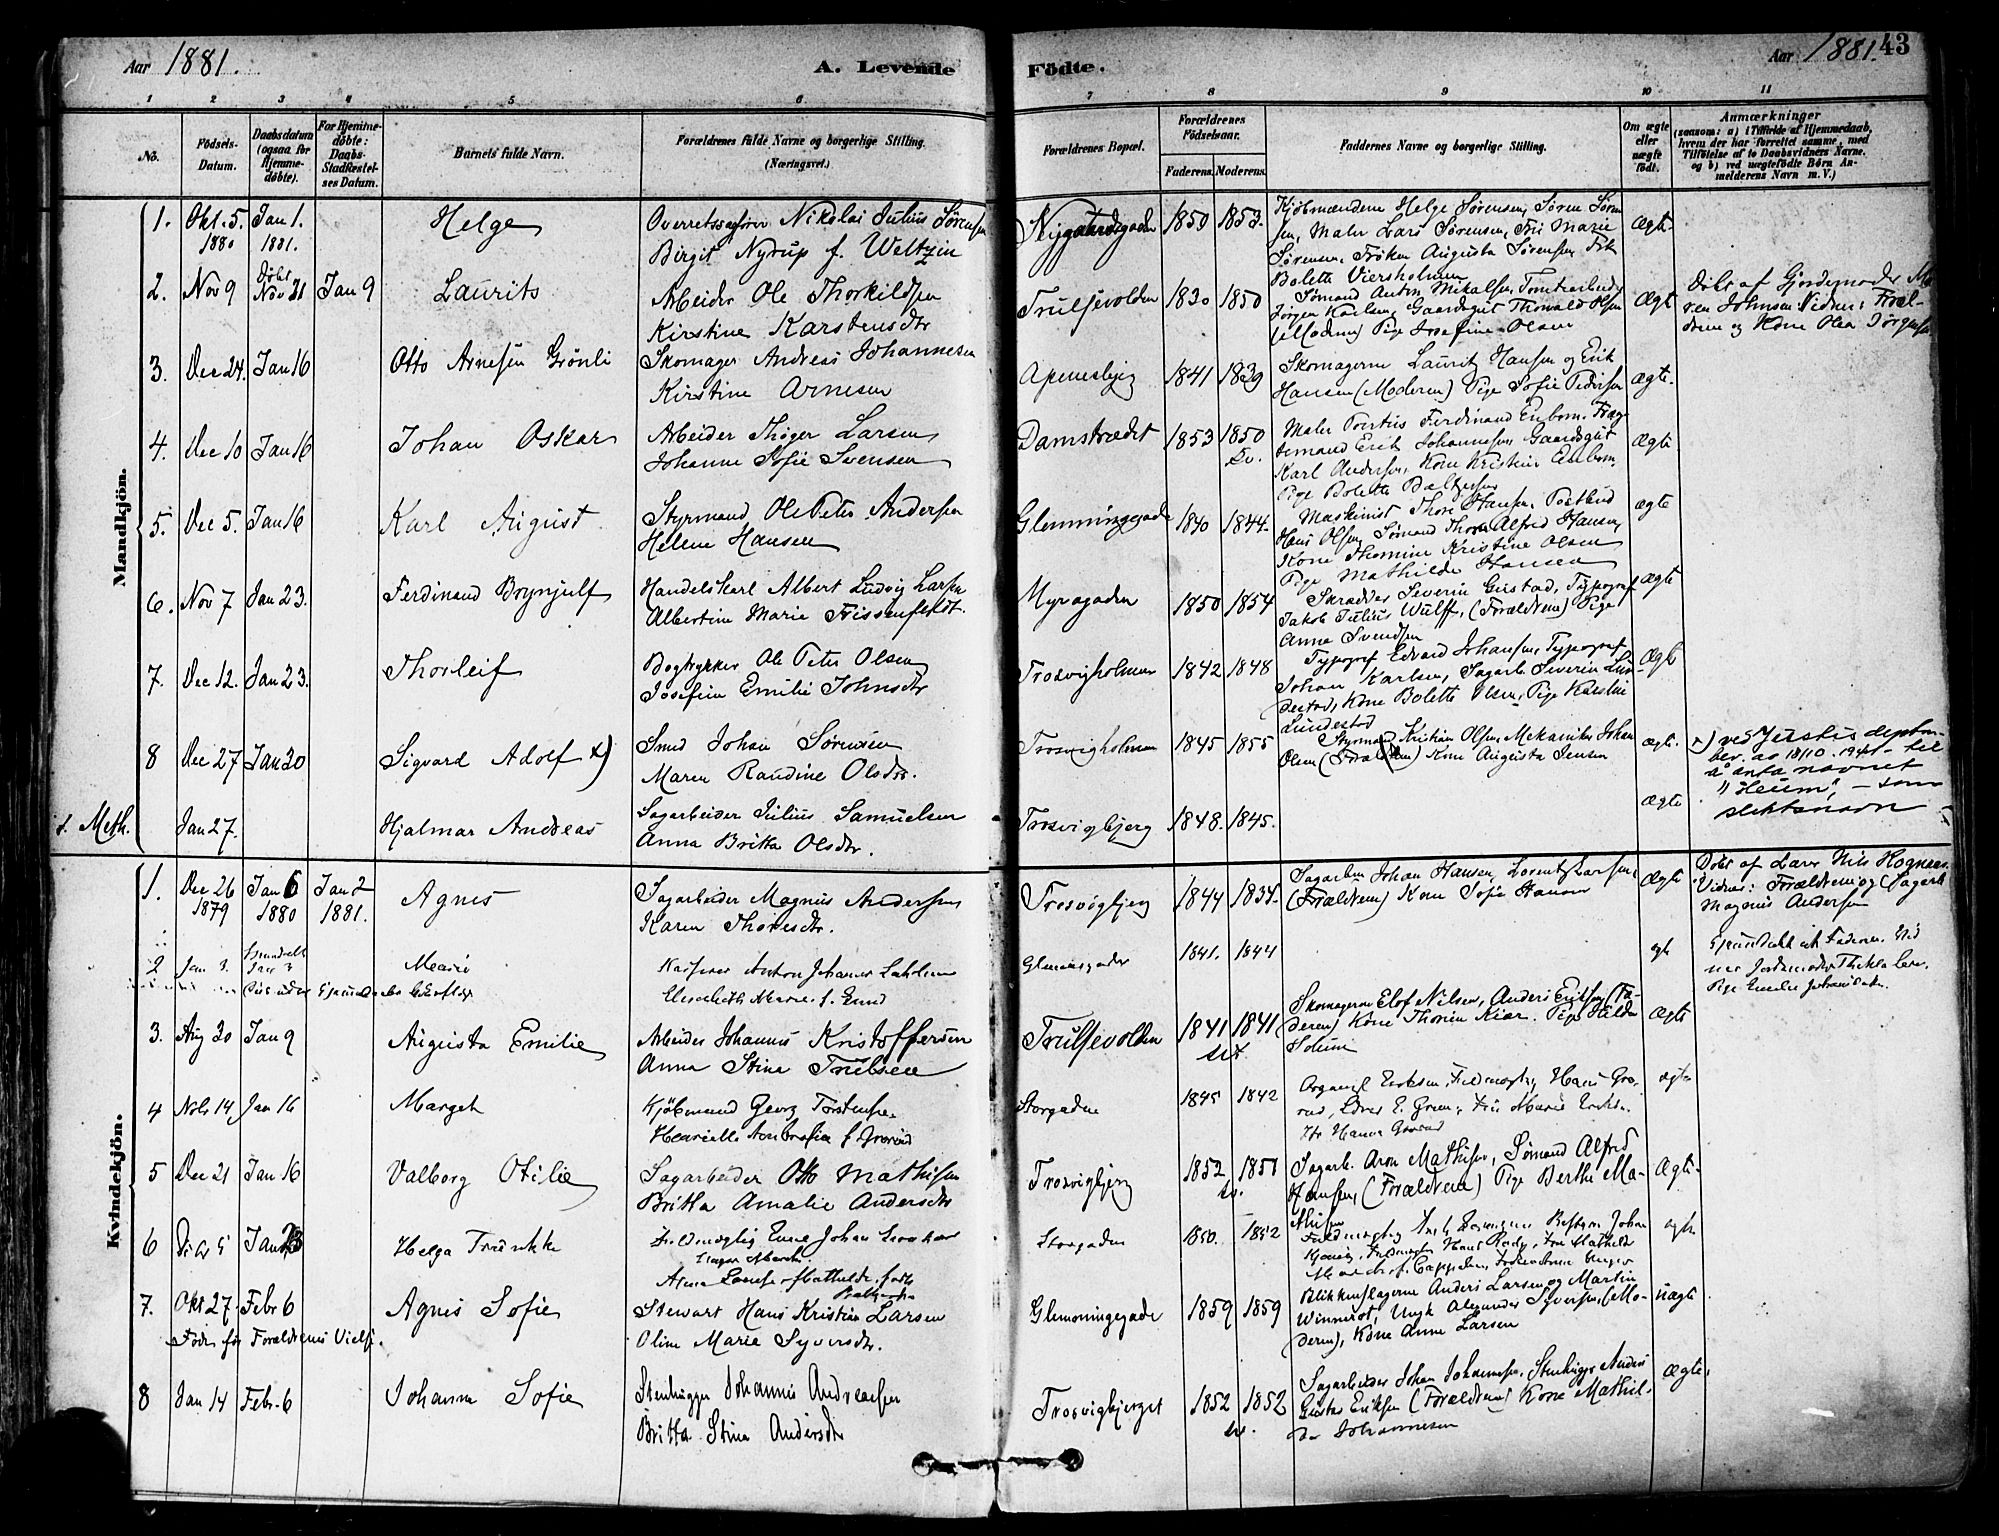 Aar 1881.
A. Levende Födte.
Aar 1881. 43
1 2 3 4 5 6 7 8 9 10 11
No.
Födsels-Datum.
Daabsdatum (ogsaa for Hjemme-döbte).
For Hjemme-döbte: Daabs-Stadfæstel-ses Datum.
Barnets fulde Navn.
Forældrenes fulde Navne og borgerlige Stilling. (Næringsvei.)
Forældrenes Bopæl.
Forældrenes Födselsaar.
Faderens. Moderens.
Faddernes Navne og borgerlige Stilling.
Om ægte eller uægte födt.
Anmærkninger
(saasom: a) i Tilfælde af Hjemmedaab,
hvem der har forrettet samme, med
Tilföielse af to Daabsvidners Navne.
og b) ved uægtefödte Börn An-
melderens Navn m. V.)
Mandkjön.
1. Okt. 5. 1880 Jan 1. 1881. Helge
Overretssagfører Nikolai Julius Sørensen
Birgit Nyrup f. Weltzin
Nygaardsgaden 1850 1853.
Kjøbmændene Helge Sørensen, Søren Søren
sen, Maler Lars Sørensen, Fru Marie
Sørensen, Frøken Augusta Sørensen, Frk
Bolette Viersholmen
Ægte
2. Nov 9 Døbt Nov 21 Jan 9 Laurits
Arbeider Ole Thorkildsen
Kirstine Karstensdtr
Trulsevolden 1830 1850
Sømand Anton Mikalsen, Tomtearbeider
Jørgen Karlsen, Gaardsgut Thorvald Olsen
(Moderen) Pige Josefine Olsen
Ægte
Døbt af Gjordemoder Ma
ren Johnsen Vidner: Foræl-
drene og Kone Olea Jørgensen
3. Dec 24. Jan 16 Otto Arnesen Grönli
Skomager Andreas Johannesen
Kirstine Arnesen
Apenesbjerg 1841 1839
Skomagerne Lauritz Hansen og Erik
Hansen (Moderen) Pige Sofie Pedersen
Ægte.
4. Dec 10 Jan 16 Johan Oskar
Arbeider Thøger Larsen
Johanne Sofie Svensen
Damstrædet 1853 1850 Sv.
Maler Ferdinand Enbom, Fræg
temand Erik Johannesen, Gaardsgut
Karl Andersen, Kone Kristine Enbom,
Pige Bolette Baltzersen
Ægte
5. Dec 5. Jan 16 Karl August
Styrmand Ole Peter Andersen
Helene Hansen
Glemmingegade 1840 1844.
Maskinist Thore Hansen, Postbud
Hans Olsen, Sømand Thore Alfred Hansen,
Kone Thomine Kristine Olsen
Pige Mathilde Hansen
Ægte
6. Nov 7 Jan 23. Ferdinand Brynjulf
Handelskarl Albert Ludvig Larsen
Albertine Marie Frissenfeldt.
Myragaden 1850 1854
Skrædder Severin Gustad, Typograf
Jakob Julius Wulff, (Forældrene) Pige
Anna Svendsen
Ægte
7. Dec 12. Jan 23. Thorleif
Bogtrykker Ole Peter Olsen
Josefine Emilie Johnsdtr
Trosvigholmen 1842 1848
Typograf Edvard Johansen, Typograf
Johan Karlsen, Sagarb. Severin Lun
destad, Kone Bolette Olsen, Pige Karoline
Lundestad
Ægte
8 Dec 27 Jan 30 Sigvard Adolf x)
Smed Johan Sørensen
Maren Randine Olsdtr.
Trosvigholmen 1845 1855
Styrmand Kristian Olsen, Mekaniker Johan
Olsen (Forældrene) Kone Augusta Jensen
Ægte.
x) ved Justisdeptem
bev. av 18/10-1941 - til
å anta navnet
"Heum", - som
slektsnavn
f. Meth. Jan 27. Hjalmar Andreas
Sagarbeider Julius Samuelsen
Anna Britta Olsdtr.
Trosvigbjerg 1848. 1845.
Ægte
Kvindekjön.
1. Dec 26 1879 Jan 6 1880 Jan 2 1881. Agnes
Sagarbeider Magnus Andersen
Karen Thoresdtr.
Trosvigbjerg 1844 1834.
Sagarben Johan Hansen, Lorentz Larsen,
(Forældrene) Kone Sofie Hansen
Ægte
Døbt af Lærer Nils Hognæs.
Vidner: Forældrene og Sagarb.
Magnus Andersen
2 Jan 3. Jan 3 Marie
Kasserer Anton Johannes
Elisabeth Marie f. Lund
Glemmegaden 1841. 1844
ægte
Hjemmedøbt af Faderen. Vid
ner Jordemoder Thekla
Pige Emilie
3. Aug 30 Jan 9 Augusta Emilie
Arbeider Johannes Kristoffersen
Anna Stina Trulsen
Trulsevolden 1841 1841
Skomagerne Elof Nilsen, Anders Eriksen (Fa-
deren) Kone Thorine Kiær. Pige Hilda
Solum
Ægte
4 Nov 14 Jan 16 Margit
Kjöbmand Georg Torstensen
Henriette Ambrosia f. Grorud
Storgaden 1845 1842
Eriksen, Hans Gro-
rud, E. Gren, Fru Marie Eriksen.
Fr Hanna Grorud
ægte
5 Dec 21 Jan 16 Valborg Otilie
Sagarbeider Otto Mathisen
Britta Amalie Andersdtr
Trosvigbjerg 1852 1851 sv.
Sagarb. Aron Mathisen, Sømand Alfred
Hansen, (Forældrene) Pige Berthe Ma-
thisen
Ægte.
6 Jan 23 Helga Fredrikke
Johan
Anna Louise Mathilde født
Storgaden 1850. 1852
ægte
7. Okt 27 Febr 6 Agnes Sofie
Født før Forældrenes Vielse.
Stewart Hans Kristian Larsen
Oline Marie Syversdtr.
Glemmingegade 1859 1859
Blikkenslagerne Anders Larsen og Martin
Winnerot, Ungk Alexander Syversen, (Mo-
deren), Kone Anne Larsen
uægte
8 Jan 14 Febr. 6 Johanna Sofie
Stenhugger Johannes Andreasen
Britta Stina Andersdtr
Trosvigbjerget 1852 1852 sv.
Sagarbeider Johan Johannesen, Stenhugger Anders
Gustav Eriksen (Forældrene) Kone Mathil-
da Johannesen
Ægte.